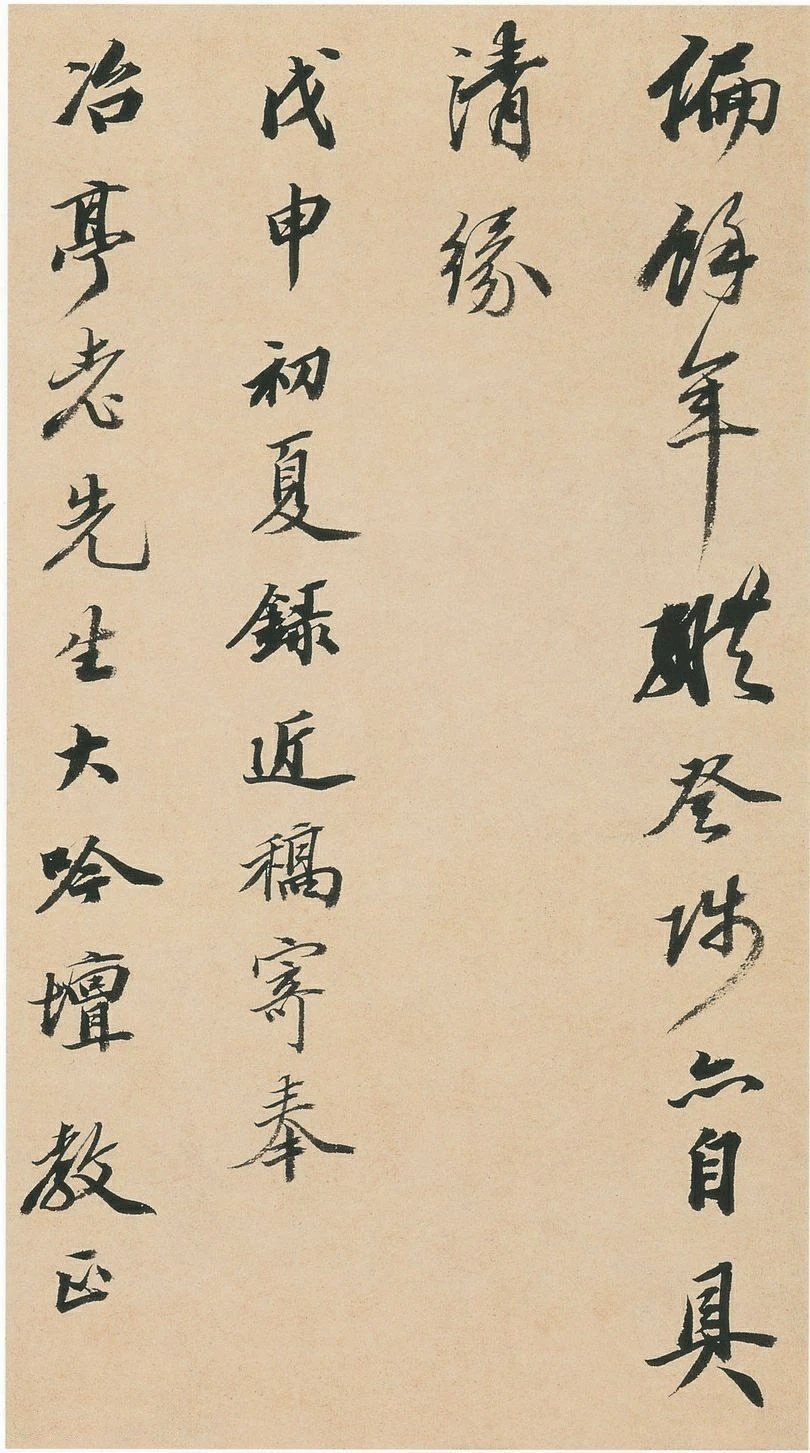 餘年登陟亦自具
清緣
戊申初夏錄近稿寄奉
冶亭老先生大吟壇教正